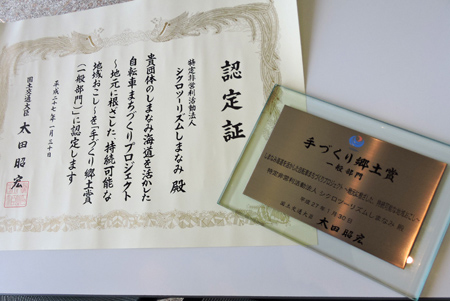 認定証
特定非営利活動法人
シクロツーリズムしまなみ 殿
貴団体のしまなみ海道を活かした
自転車まちづくりプロジェクト
～地元に根ざした、持続可能な
地域おこし～を「手づくり郷土賞
(一般部門)」に認定します
平成二十七年一月三十日
国土交通大臣 太田昭宏
手づくり郷土賞
一般部門
特定非営利活動法人 シクロツーリズムしまなみ 殿
平成27年1月30日
国土交通大臣 太田昭宏